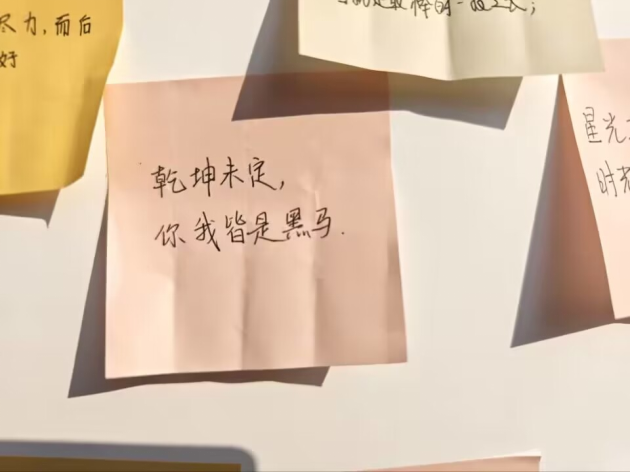 尽力,而后
好
乾坤未定,
你我皆是黑马.
星光
时